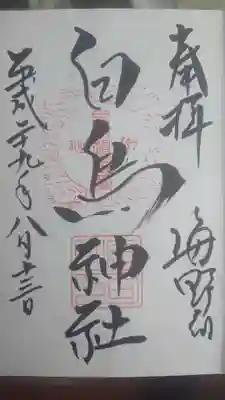 奉拝
海野郷
白鳥神社
平成二十九年八月十三日